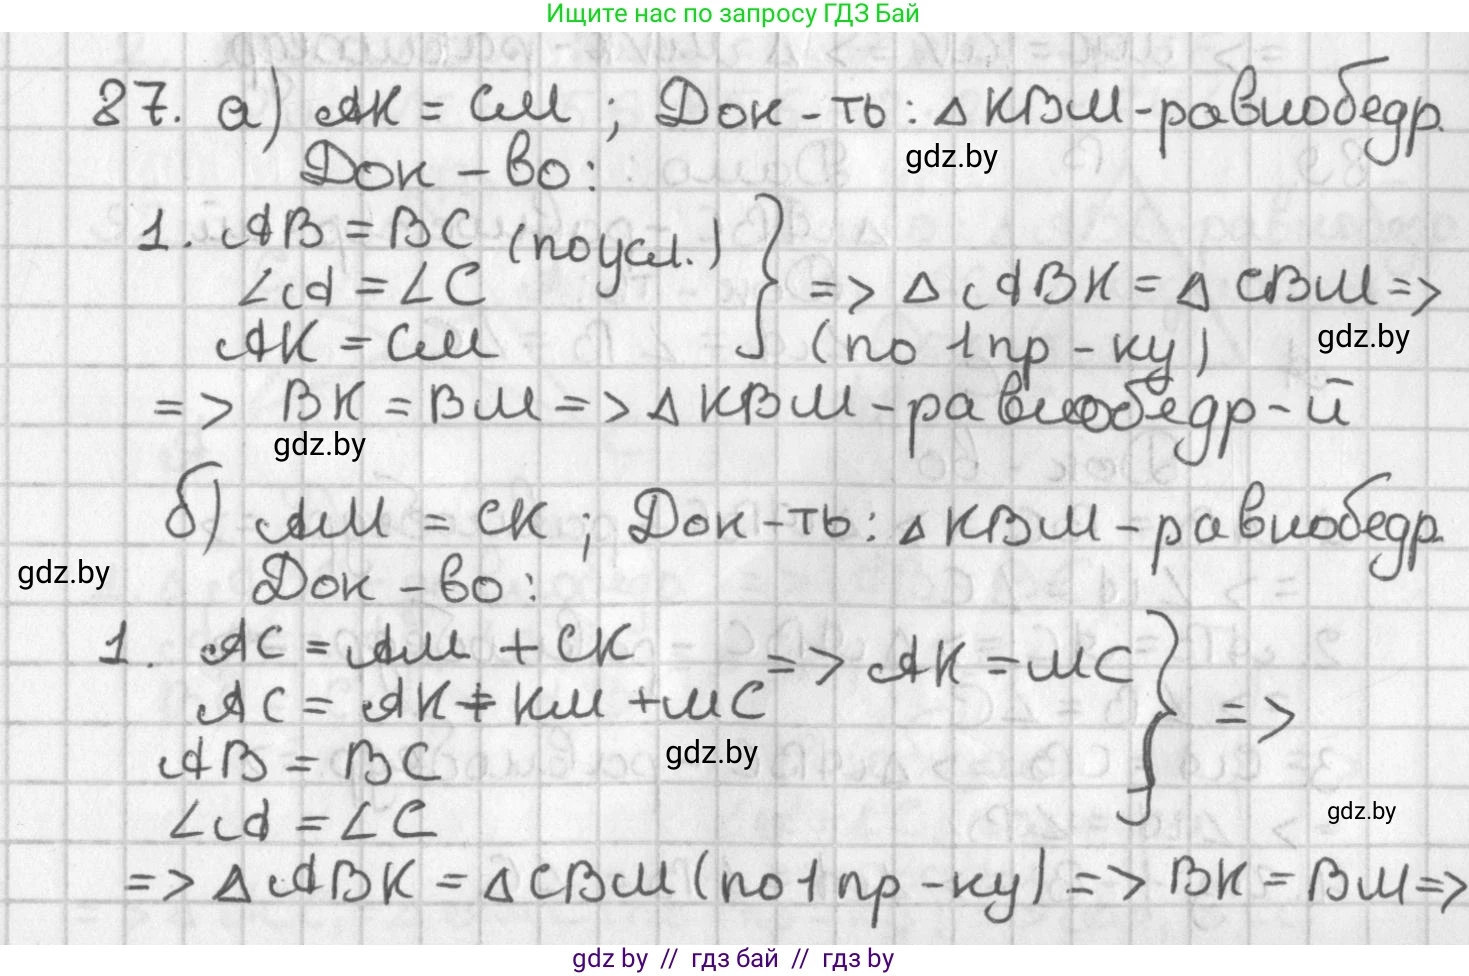 Ищите нас по запросу ГДЗ Бай
87. а) AK = CM ; Док-ть: △ KBM - равнобедр.
gdz.by
Док-во:
1. AB = BC (по усл.)
∠A = ∠C => △ ABK = △ CBM =>
AK = CM (по 1 пр-ку)
gdz.by
=> BK = BM => △ KBM - равнобедр-й
gdz.by
б) AM = CK ; Док-ть: △ KBM - равнобедр.
gdz.by
Док-во:
1. AC = AM + CK => AK = MC } =>
AC = AK + KM + MC
AB = BC
gdz.by
∠A = ∠C
gdz.by
=> △ ABK = △ CBM (по 1 пр-ку) => BK = BM =>
gdz by // гдз бай // гдз by